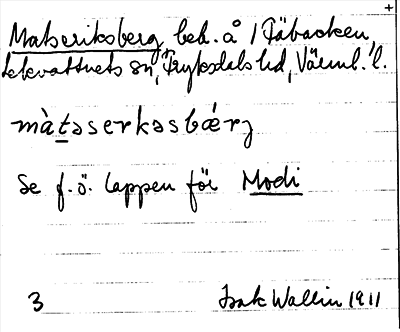 +
Matseriksberg, beb. å / Fäbacken,
Lekvattnets sn, Fryksdals hd, Värml. l.
màt̲əserkəsbǽrʒ
Se f. ö. lappen för Modi
3 Isak Wallin 1911